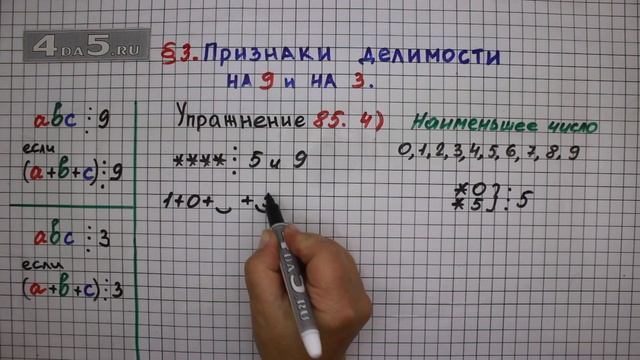 4DA5.RU
§3. Признаки делимости
на 9 и на 3.
abc ⋮ 9
если
(a+b+c) ⋮ 9
abc ⋮ 3
если
(a+b+c) ⋮ 3
Упражнение 85. 4)
**** ⋮ 5 и 9
1+0+ +
Наименьшее число
0,1,2,3,4,5,6,7,8,9
*0
*5} ⋮ 5
4DA5.RU